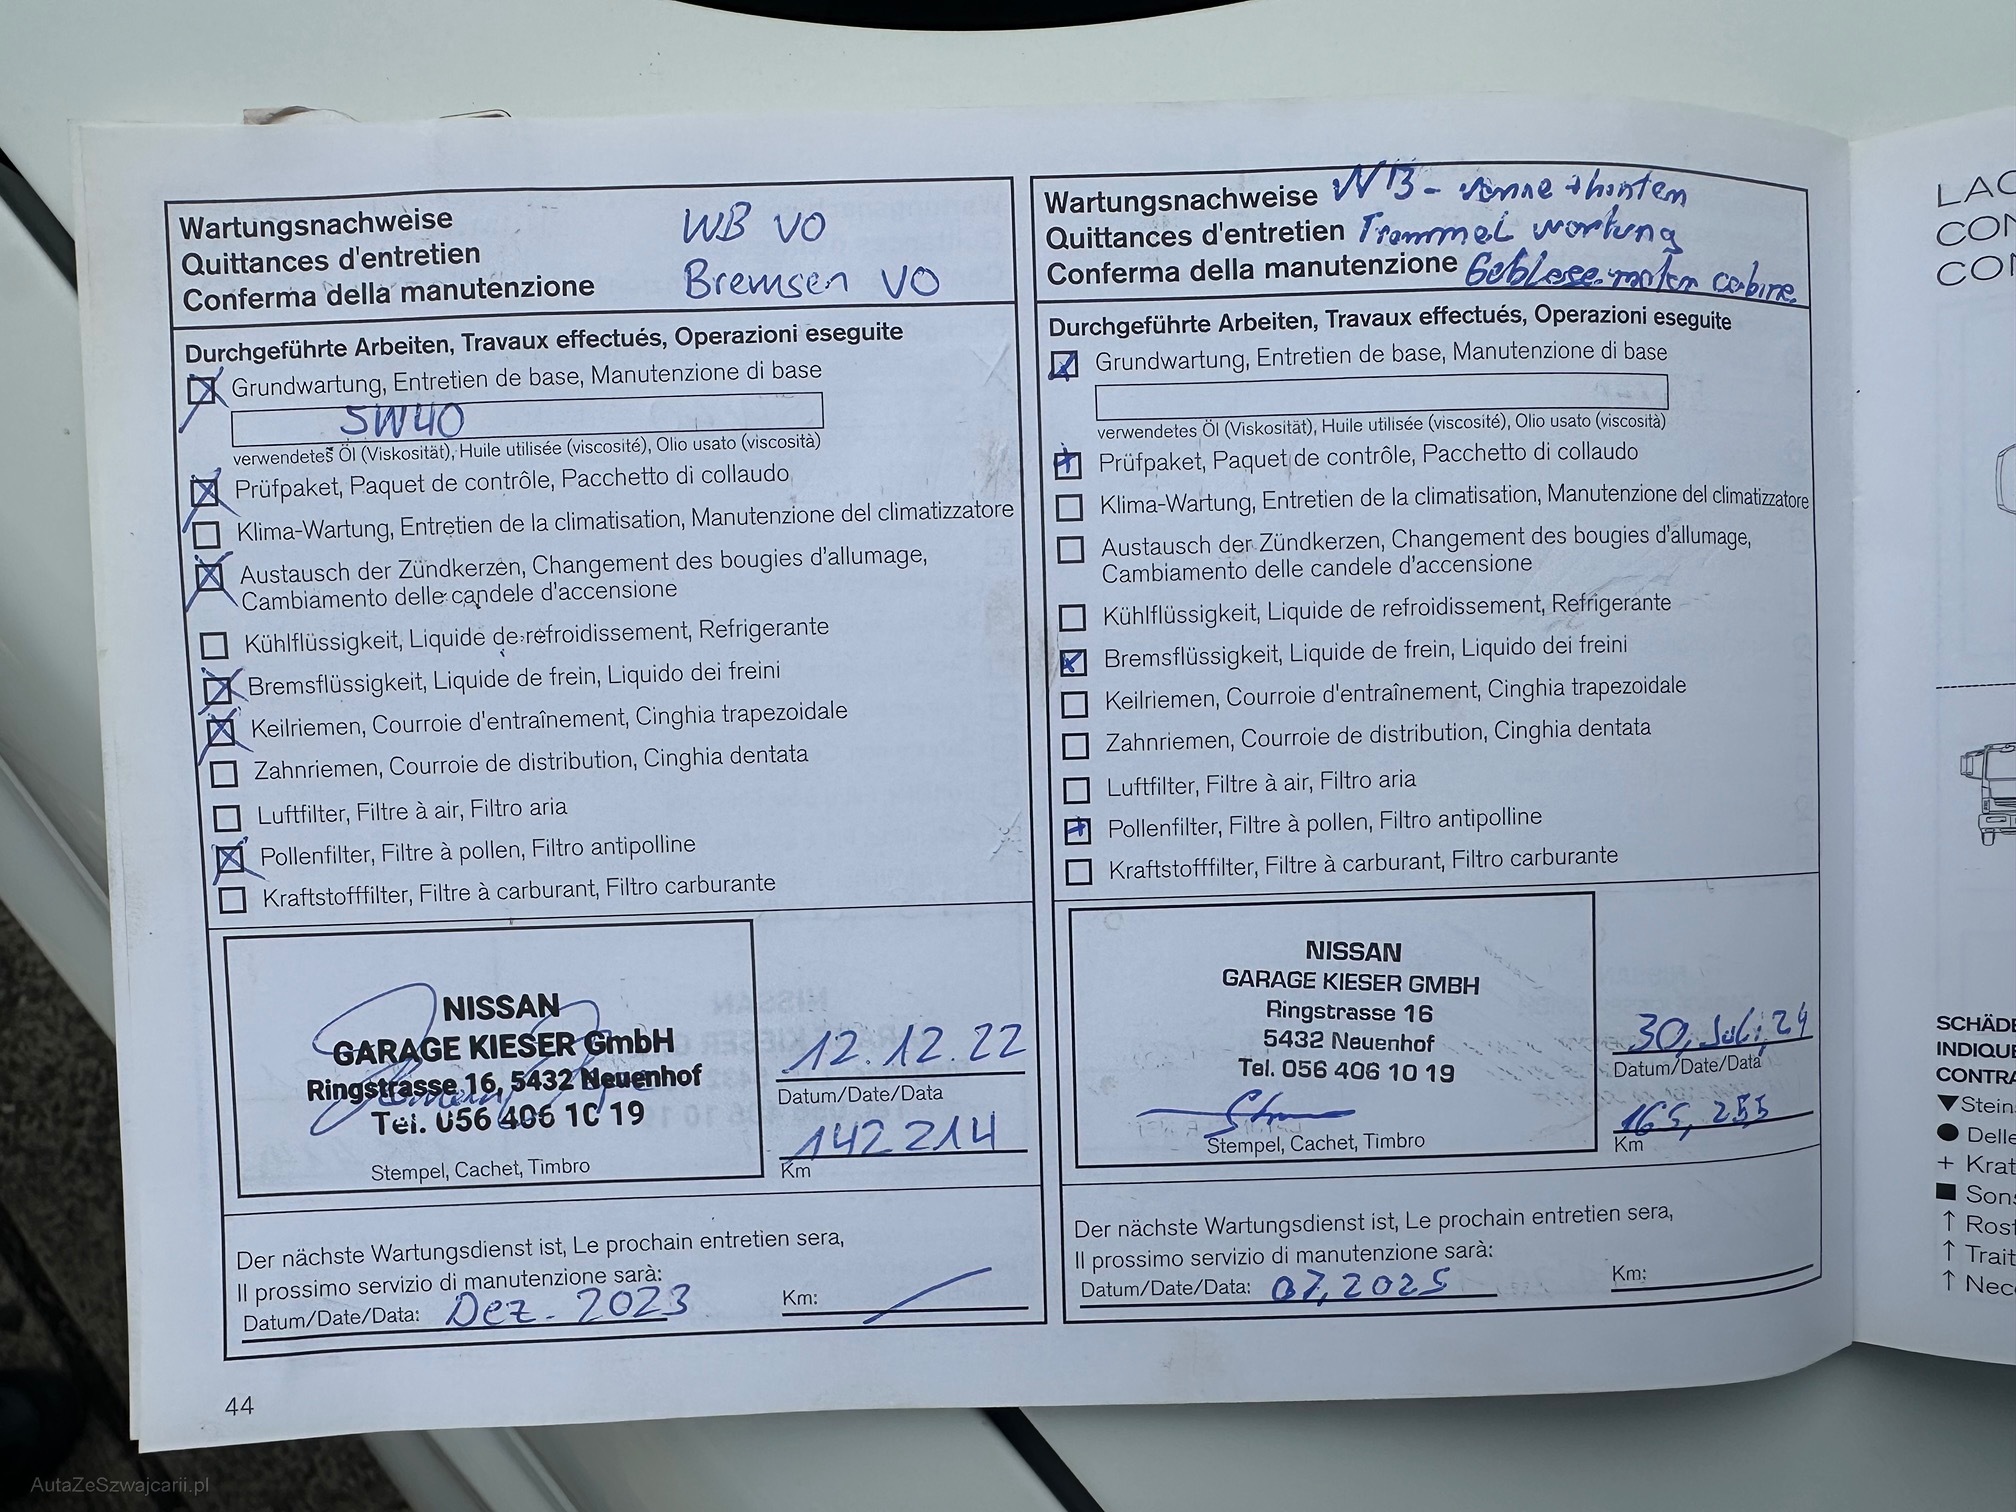 Wartungsnachweise WB VO
Quittances d'entretien
Conferma della manutenzione Bremsen VO
Durchgeführte Arbeiten, Travaux effectués, Operazioni eseguite
Grundwartung, Entretien de base, Manutenzione di base
5W40
verwendetes Öl (Viskosität), Huile utilisée (viscosité), Olio usato (viscosità)
Prüfpaket, Paquet de contrôle, Pacchetto di collaudo
Klima-Wartung, Entretien de la climatisation, Manutenzione del climatizzatore
Austausch der Zündkerzen, Changement des bougies d'allumage,
Cambiamento delle candele d'accensione
Kühlflüssigkeit, Liquide de refroidissement, Refrigerante
Bremsflüssigkeit, Liquide de frein, Liquido dei freini
Keilriemen, Courroie d'entraînement, Cinghia trapezoidale
Zahnriemen, Courroie de distribution, Cinghia dentata
Luftfilter, Filtre à air, Filtro aria
Pollenfilter, Filtre à pollen, Filtro antipolline
Kraftstofffilter, Filtre à carburant, Filtro carburante
NISSAN
GARAGE KIESER GmbH
Ringstrasse 16, 5432 Neuenhof
Tel. 056 406 10 19
Stempel, Cachet, Timbro
12.12.22
Datum/Date/Data
142214
Km
Der nächste Wartungsdienst ist, Le prochain entretien sera,
Il prossimo servizio di manutenzione sarà:
Datum/Date/Data: Dez. 2023 Km:
44
Wartungsnachweise - vorne + hinten
Quittances d'entretien Trommel wartung
Conferma della manutenzione cabine
Durchgeführte Arbeiten, Travaux effectués, Operazioni eseguite
Grundwartung, Entretien de base, Manutenzione di base
verwendetes Öl (Viskosität), Huile utilisée (viscosité), Olio usato (viscosità)
Prüfpaket, Paquet de contrôle, Pacchetto di collaudo
Klima-Wartung, Entretien de la climatisation, Manutenzione del climatizzatore
Austausch der Zündkerzen, Changement des bougies d'allumage,
Cambiamento delle candele d'accensione
Kühlflüssigkeit, Liquide de refroidissement, Refrigerante
Bremsflüssigkeit, Liquide de frein, Liquido dei freini
Keilriemen, Courroie d'entraînement, Cinghia trapezoidale
Zahnriemen, Courroie de distribution, Cinghia dentata
Luftfilter, Filtre à air, Filtro aria
Pollenfilter, Filtre à pollen, Filtro antipolline
Kraftstofffilter, Filtre à carburant, Filtro carburante
NISSAN
GARAGE KIESER GMBH
Ringstrasse 16
5432 Neuenhof
Tel. 056 406 10 19
Stempel, Cachet, Timbro
30, Juli, 24
Datum/Date/Data
165,255
Km
Der nächste Wartungsdienst ist, Le prochain entretien sera,
Il prossimo servizio di manutenzione sarà:
Datum/Date/Data: 07,2025 Km:
LAC
CON
CON
SCHÄDE
INDIQUE
CONTRA
▼ Stein
● Delle
+ Krat
■ Sons
↑ Rost
↑ Trait
↑ Nec
AutaZeSzwajcarii.pl